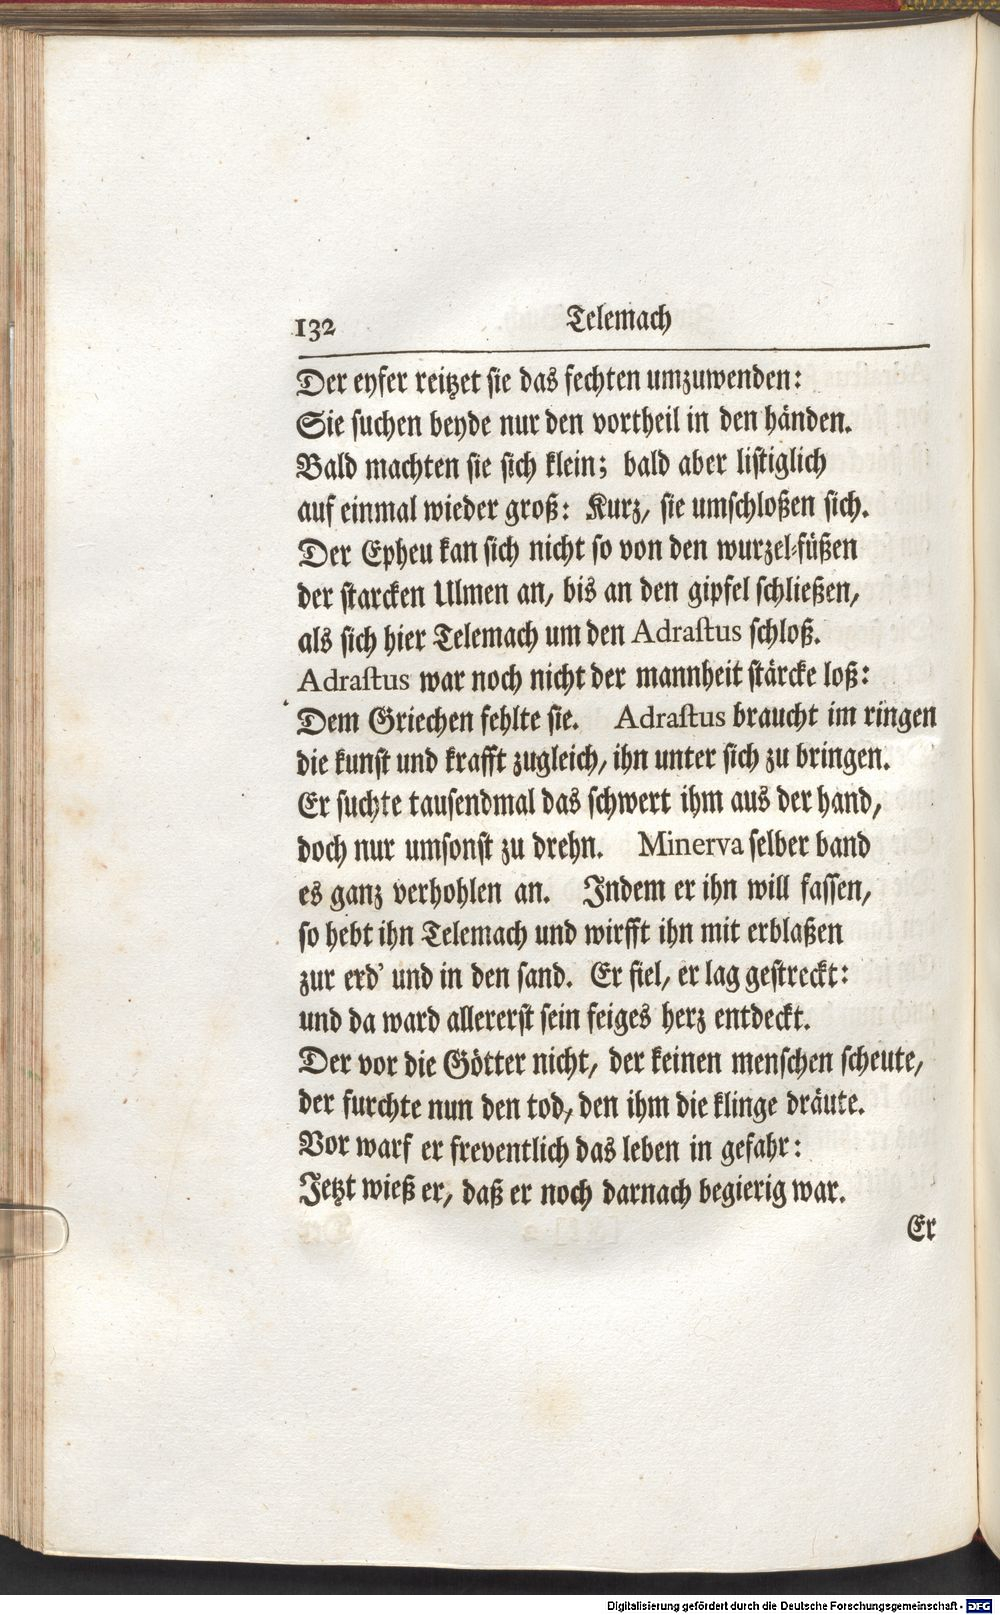 132 Telemach
Der eyfer reitzet sie das fechten umzuwenden:
Sie suchen beyde nur den vortheil in den händen.
Bald machten sie sich klein; bald aber listiglich
auf einmal wieder groß: Kurz, sie umschloßen sich.
Der Epheu kan sich nicht so von den wurzel-füßen
der starcken Ulmen an, bis an den gipfel schließen,
als sich hier Telemach um den Adrastus schloß.
Adrastus war noch nicht der mannheit stärcke loß:
Dem Griechen fehlte sie. Adrastus braucht im ringen
die kunst und krafft zugleich, ihn unter sich zu bringen.
Er suchte tausendmal das schwert ihm aus der hand,
doch nur umsonst zu drehn. Minerva selber band
es ganz verhohlen an. Indem er ihn will fassen,
so hebt ihn Telemach und wirfft ihn mit erblaßen
zur erd' und in den sand. Er fiel, er lag gestreckt:
und da ward allererst sein feiges herz entdeckt.
Der vor die Götter nicht, der keinen menschen scheute,
der furchte nun den tod, den ihm die klinge dräute.
Vor warf er freventlich das leben in gefahr:
Jetzt wieß er, daß er noch darnach begierig war.
Er
Digitalisierung gefördert durch die Deutsche Forschungsgemeinschaft - DFG